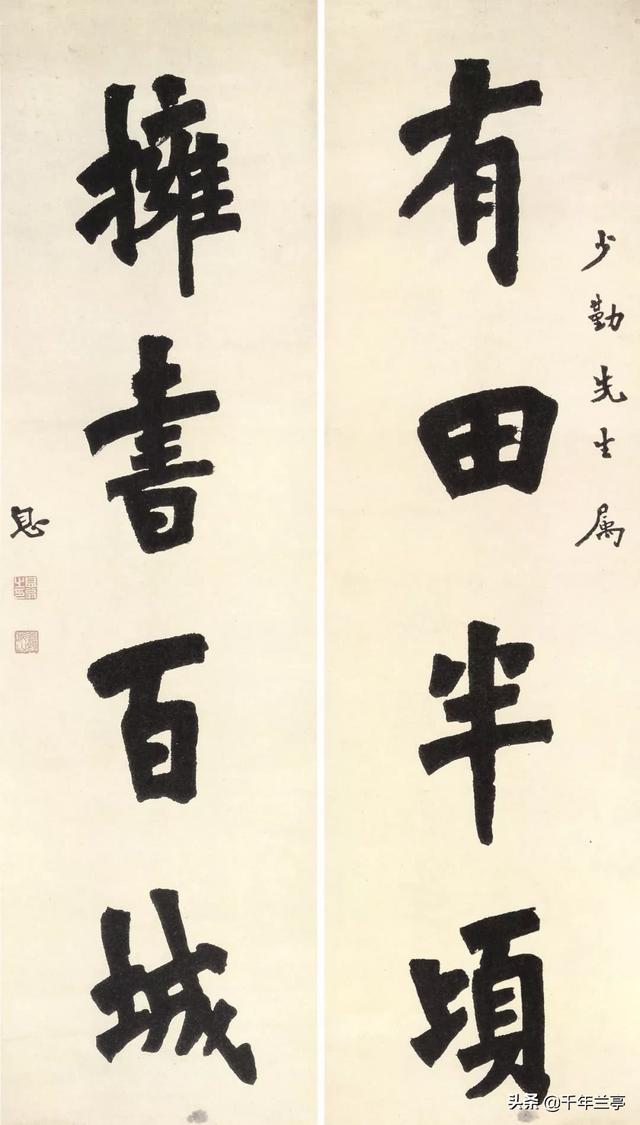 少勤先生属
有田半頃
擁書百城
头条 @千年兰亭